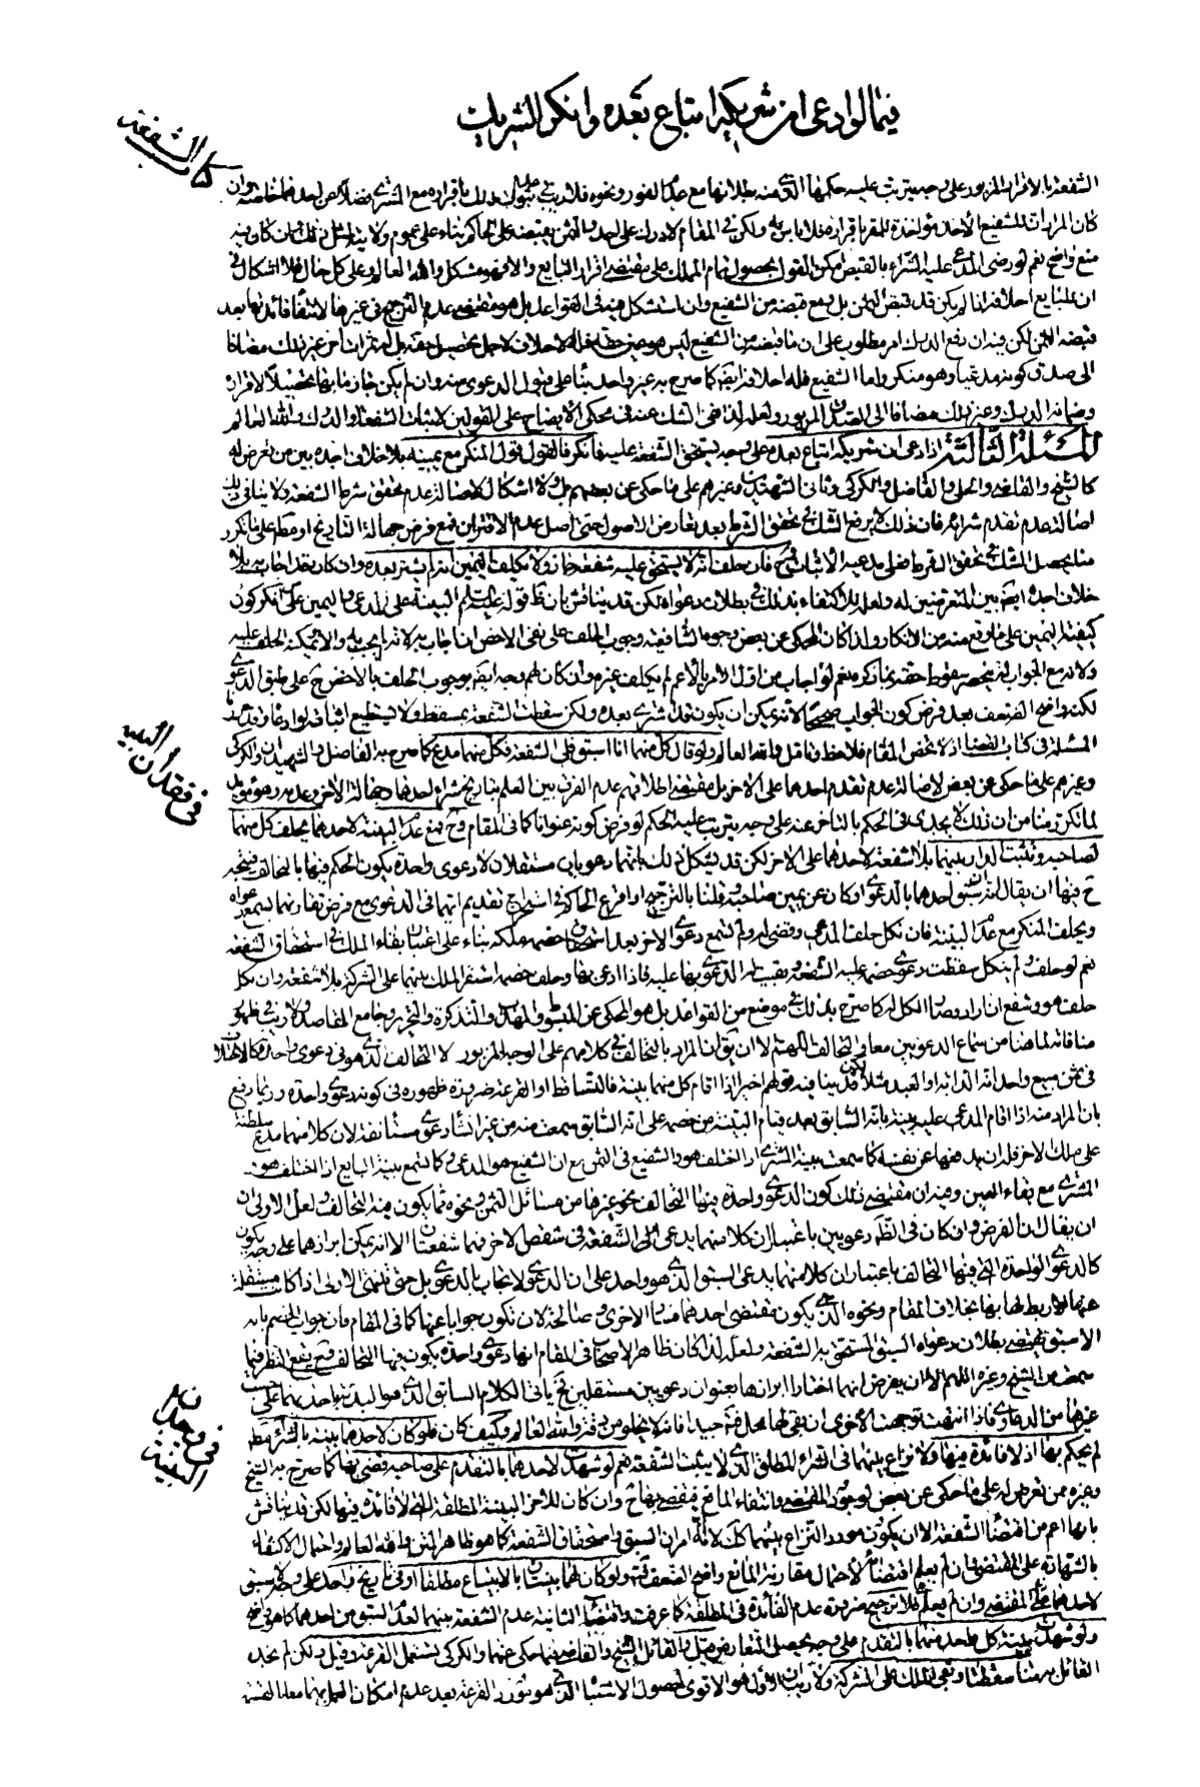 فيما لو ادعى ان شريكه ابتاع بعده وانكر الشريك
كتاب الشفعة
الشفعة بالاقرار المزبور على وجه يترتب عليه حكمها الذي منه بطلانها مع عدم الفور ونحوه فلا ريب في ثبوت ذلك باقراره مع المشتري فضلا عن احدهما خاصة وان
كان المراد ان للشفيع الاخذ مؤاخذة للمقر باقراره فلا باس به ولكن في المقام لا درك على احد والثمن يقبضه الحاكم بناء على عموم ولايته لمثل ذلك وان كان فيه
منع واضح نعم لو رضى المدعى عليه الشراء بالقبض امكن القول بحصول تمام الملك على مقتضى اقرار البايع والا فهو مشكل والله العالم وعلى كل حال فلا اشكال في
ان للبايع احلافه ان لم يكن قد قبض الثمن بل ومع قبضه من الشفيع وان استشكل فيه في القواعد بل هو مقتضى عدم الترجيح في غيرها لانتفاء فائدتها بعد
قبضه الثمن لكن فيه ان دفع الدرك امر مطلوب على ان ما قبضه من الشفيع ليس هو عين حقه فله الاحلاف لاجل تحصيل حقه بل له ثمرات اخر غير ذلك مضافا
الى صدق كونه مدعيا وهو منكر واما الشفيع فله احلافه ايضا كما صرح به غير واحد بناء على قبول الدعوى منه وان لم يكن جازما بها تحصيلا لاقراره
وضمانه الدرك وغير ذلك مضافا الى الصدق المزبور ولعله لذا في الشك عنه في محكي الايضاح على القولين لاثبات الشفعة والدرك والله العالم
المسئلة الثالثة اذا ادعى ان شريكه ابتاع بعده على وجه يستحق الشفعة عليه فانكر فالقول قول المنكر مع يمينه بلا خلاف اجده بين من تعرض له
كالشيخ والقاضي والحلي والفاضل والكركي وثاني الشهيدين وغيرهم على ما حكي عن بعضهم بل ولا اشكال لاصالة عدم تحقق شرط الشفعة ولا ينافي ذلك
اصالة عدم تقدم شرائه فان ذلك لا يرفع الشك في تحقق الشرط بعد تعارض الاصول حتى اصل عدم الاقتران مع فرض جهالة التاريخ او مطلقا على ما تكرر
منا يحصل الشك في تحقق الشرط فعلى مدعيه الاثبات فان حلف انه لا يستحق عليه شفعة جاز ولا يكلف اليمين انه لم يشتر بعده وان كان قد اجاب به بلا
خلاف اجده ايضا بين المتعرضين له ولعله للاكتفاء بذلك في بطلان دعواه لكن قد يناقش بان ظاهر قوله عليه السلم البينة على المدعي واليمين على من انكر كون
كيفية اليمين على ما وقع منه من الانكار ولذا كان المحكي عن بعض وجوه الشافعية وجوب الحلف على نفي الاخص ان اجاب به لانه لم يجب به الا ويمكنه الحلف عليه
ولانه مع الجواب به ينحصر سقوط حقه بما ذكره نعم لو اجاب من اول الامر بالاعم لم يكلف غيره وان كان لهم وجه ايضا بوجوب الحلف بالاخص على طبق الدعوى
لكنه واضح الضعف بعد فرض كون الجواب صحيحا لانه يمكن ان يكون قد اشترى بعده ولكن سقطت الشفعة بمسقط ولا يستطيع اثباته لو ادعاه
المسئلة في كتاب القضاء اذ لا تخص المقام فلاحظ وتامل والله العالم ولو قال كل منهما انا اسبق فلي الشفعة فكل منهما مدع كما صرح به الفاضل والشهيدان والكركي
وغيرهم على ما حكي عن بعض لاصالة عدم تقدم احدهما على الاخر بل مقتضى اطلاقهم عدم الفرق بين العلم بتاريخ شراء احدهما وجهالة الاخر وعدمه وهو مؤيد
لما تكرر منا من ان ذلك لا يجدي في الحكم بالتاخر عنه على وجه يترتب عليه الحكم لو فرض كونه عنوانا كما في المقام وح فمع عدم البينة لاحدهما يحلف كل منهما
لصاحبه وتثبت الدار بينهما بلا شفعة لاحدهما على الاخر لكن قد يشكل ذلك بانهما دعويان مستقلتان لا دعوى واحدة يكون الحكم فيها بالتحالف فيتجه
ح فيها ان يقال ان سبق احدهما بالدعوى او كان عن يمين صاحبه وقلنا بالترجيح به او اقرع الحاكم في استخراج تقديم ايهما في الدعوى مع فرض تقارنهما سمع دعواه
ويحلف المنكر مع عدم البينة فان نكل حلف المدعي وقضى له ولم تسمع دعوى الاخر بعد استحقاق خصمه ملكه بناء على اعتبار بقاء الملك في استحقاق الشفعة
نعم لو حلف ولم ينكل سقطت دعوى خصمه عليه الشفعة وبقيت له الدعوى بها عليه فاذا ادعى بها وحلف خصمه استقر الملك بينهما على الشركة بلا شفعة وان نكل
حلف هو وشفع ان اراد وصار الكل له كما صرح بذلك في موضع من القواعد بل هو المحكي عن المبسوط والمهذب والتذكرة والتحرير وجامع المقاصد ولا ريب في ظهور
منافاته لما هنا من سماع الدعويين معا والتحالف اللهم الا ان يق ان المراد بالتحالف في كلامهم على الوجه المزبور لا التحالف الذي هو في دعوى واحدة كالاختلاف
في ثمن مبيع واحد انه الدابة او العبد مثلا لكن قد ينافيه قولهم اخيرا اذا اقام كل منهما بينة فالتساقط او القرعة ضرورة ظهوره في كونه دعوى واحدة وربما دفع
بان المراد منه اذا اقام المدعى عليه بينة بانه السابق بعد قيام البينة من خصمه على انه السابق سمعت منه من غير انشاء دعوى مستأنفة لان كلا منهما مدع سلطنة
على ملك الاخر فله ان يدفعها عن نفسه كما سمعت بينة المشتري اذ اختلف هو والشفيع في الثمن مع ان الشفيع هو المدعي وكما تسمع بينة البايع اذ اختلف هو و
المشتري مع بقاء العين وفيه ان مقتضى ذلك كون الدعوى واحدة فيها التحالف نحو غيرها من مسائل الثمن ونحوه مما يكون فيه التحالف ولعل الاولى ان
ان يقال ان الفرض وان كان في الظاهر دعويين باعتبار ان كلا منهما يدعى على الاخر الشفعة في شقص الاخر فهما شفعتان الا انه يمكن ابرازهما على وجه يكون
كالدعوى الواحدة التي فيها التحالف باعتبار ان كلا منهما يدعى السبق الذي هو واحد على ان الدعوى لا تجاب بالدعوى بل حتى تنتهي الاولى اذا كانت مستقلة
عنها لا ربط لها بها بخلاف المقام ونحوه الذي يكون مقتضى احدهما منافيا الاخرى وصالحة لان تكون جوابا عنها كما في المقام فان جواب الخصم بانه
الاسبق يقتضي بطلان دعواه السبق المستحق به الشفعة ولعله لذا كان ظاهر الاصحاب في المقام انها دعوى واحدة يكون فيها التحالف وح يقع النظر فيما
سمعت من الشيخ وغيره اللهم الا ان يفرض انهما اختارا ابرازها بعنوان دعويين مستقلتين فح ياتي الكلام السابق الذي هو البدئة باحديهما على
غيرها من الدعاوى فاذا انتهت توجهت الاخرى ان بقي لها محل فتامل جيدا فانه لا يخلو من دقة والله العالم وكيف كان فلو كان لاحدهما بينة بالشراء مطلقا
لم يحكم بها اذ لا فائدة فيها ولا نزاع بينهما في الشراء المطلق الذي لا يثبت الشفعة نعم لو شهدت لاحدهما بالتقدم على صاحبه قضى بها كما صرح به الشيخ
وغيره ممن تعرض له على ما حكي عن بعض لوجود المقتضي وانتفاء المانع فيقضى بها ح وان كان للاخر البينة المطلقة التي لا فائدة فيها لكن قد يناقش
بانها اعم من اقتضاء الشفعة الا ان يكون مورد النزاع بينهما كك لا انه امران السبق واستحقاق الشفعة كما هو ظاهر المتن والله العالم واحتمال الاكتفاء
بالشهادة على المقتضي وان لم يعلم اقتضاؤه لاحتمال مقارنة المانع واضح الضعف ولو كان لهما بينتان بالابتياع مطلقا او في تاريخ واحد على وجه لا سبق
لاحدهما على المقتضي وان لم يعلم فلا ترجيح ضرورة عدم الفائدة في المطلقة كما عرفت واقتضاء الثانية عدم الشفعة بينهما لعدم السبق من احدهما كما هو واضح
ولو شهدت بينة كل واحد منهما بالتقدم على وجه يحصل التعارض قيل والقائل الشيخ والقاضي فيما حكي عنهما والكركي يستعمل القرعة وقيل ولكن لم نجد
القائل به هنا سقطتا وبقي الملك على الشركة ولا ريب ان الاول هو الاقوى لحصول الاشتباه الذي هو مورد القرعة بعد عدم امكان العمل بهما معا للفتنة
في فقدان البينة
في وجدان البينة